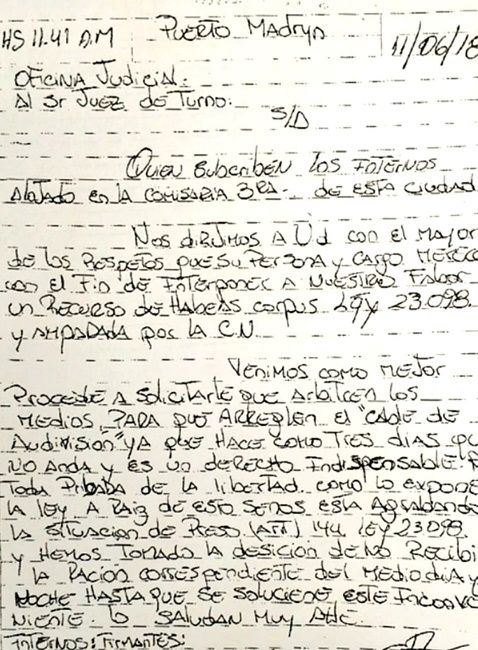 HS 11.41 A.M Puerto Madryn 11/06/18
Oficina Judicial:
Al Sr Juez de Turno:
S/D
Quien subscriben los internos
Alojado en la comisaria 3RA- de esta ciudad
Nos dirijimos a Ud con el mayor
de los Respetos que su persona y cargo merece
con el fin de interponer a nuestro fabor
un Recurso de Habeas corpus Ley 23.098
y AMPARADA por la C.N.
Venimos como mejor
Procede a solicitarle que arbitren los
medios, para que arreglen el "cable de
Audivision" ya que hace como tres dias qu
no anda y es un derecho indispensable. P
Toda Pribada de la libertad como lo expone
la ley. A Raiz de esto senos esta Agrabando
la situacion de Preso (ART) 144 Ley 23.098.
y hemos tomado la desicion de no Recibi
la Racion correspondiente del mediodia y
noche hasta que se solucione este inconve
niente. lo saludan muy Atte.
Internos: Firmantes: